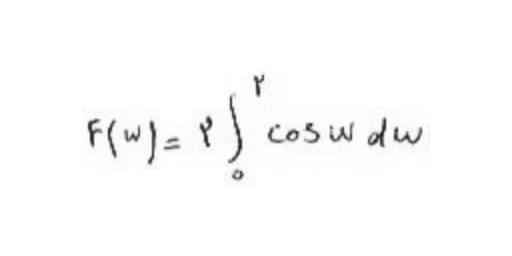 F(w) = ۲ ∫₀^۲ cos w dw